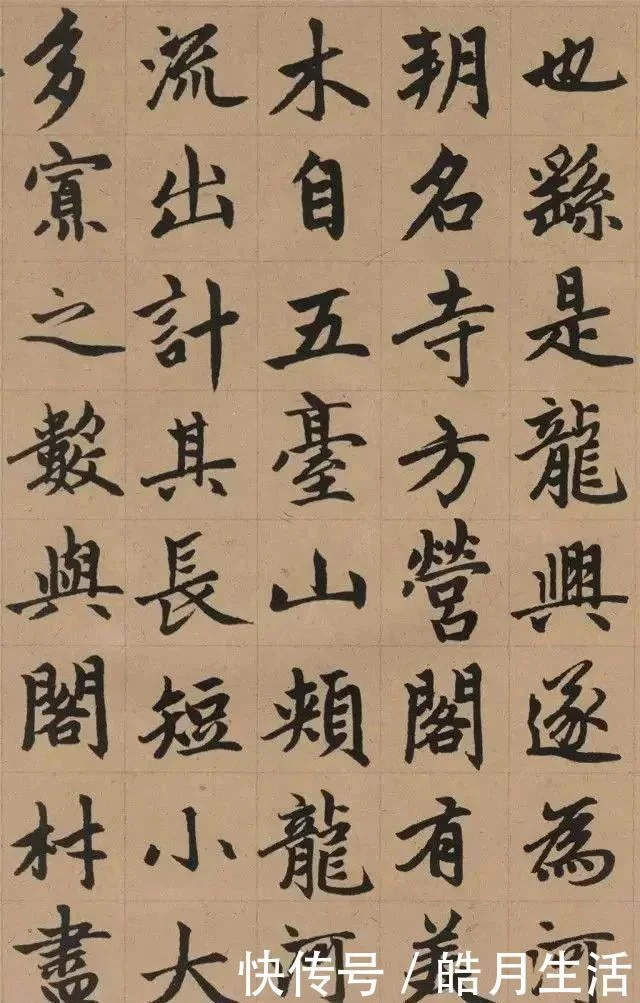 也繇是龍興遂為河
朔名寺方營閣有美
木自五臺山頰龍河
流出計其長短小大
多寡之數與閣材盡
快传号 / 皓月生活